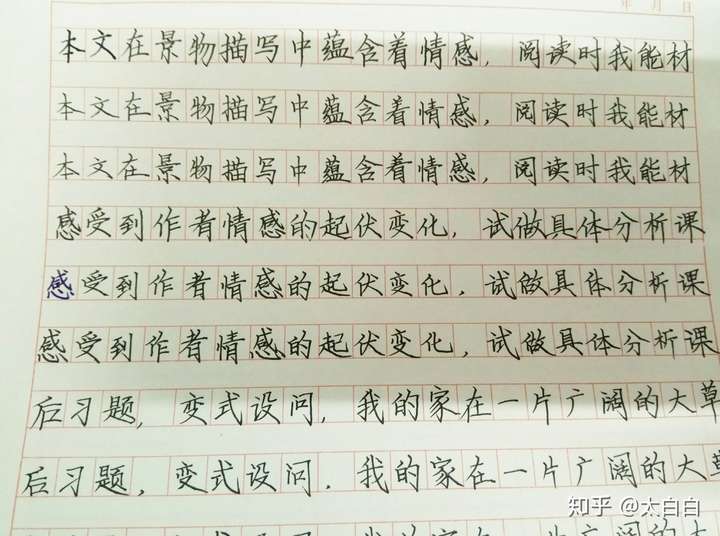 年 月 日
本文在景物描写中蕴含着情感，阅读时我能材
本文在景物描写中蕴含着情感，阅读时我能材
本文在景物描写中蕴含着情感，阅读时我能材
感受到作者情感的起伏变化，试做具体分析课
感受到作者情感的起伏变化，试做具体分析课
感受到作者情感的起伏变化，试做具体分析课
后习题，变式设问，我的家在一片广阔的大草
后习题，变式设问，我的家在一片广阔的大草
知乎 @太白白